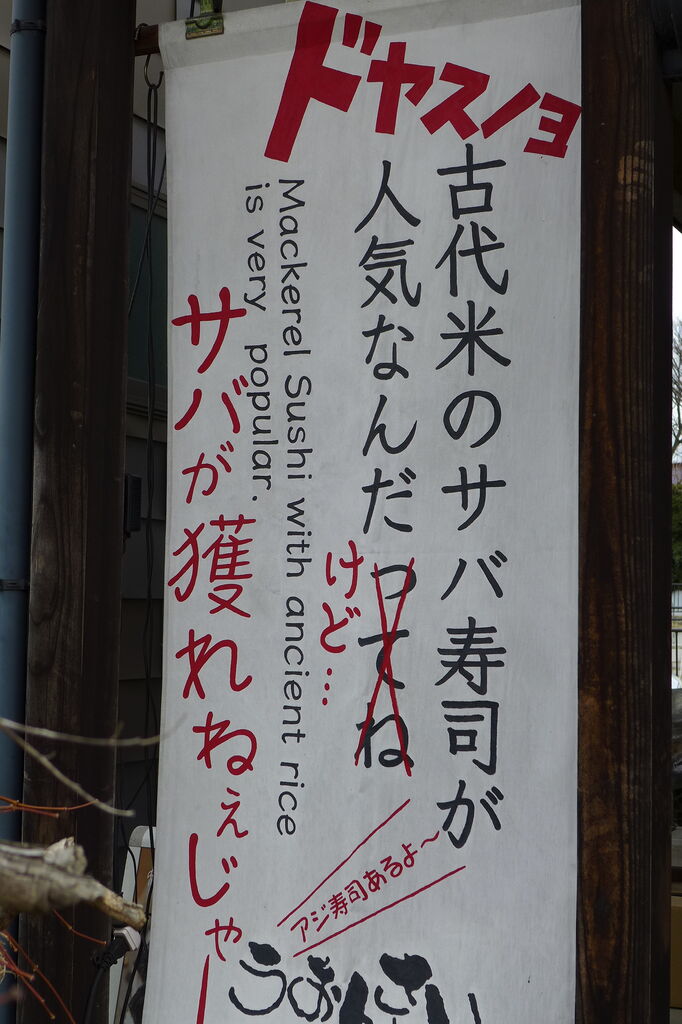 ドヤスノヨ
古代米のサバ寿司が
人気なんだってね
けど…
Mackerel Sushi with ancient rice
is very popular.
サバが獲れねぇじゃー
アジ寿司あるよ～